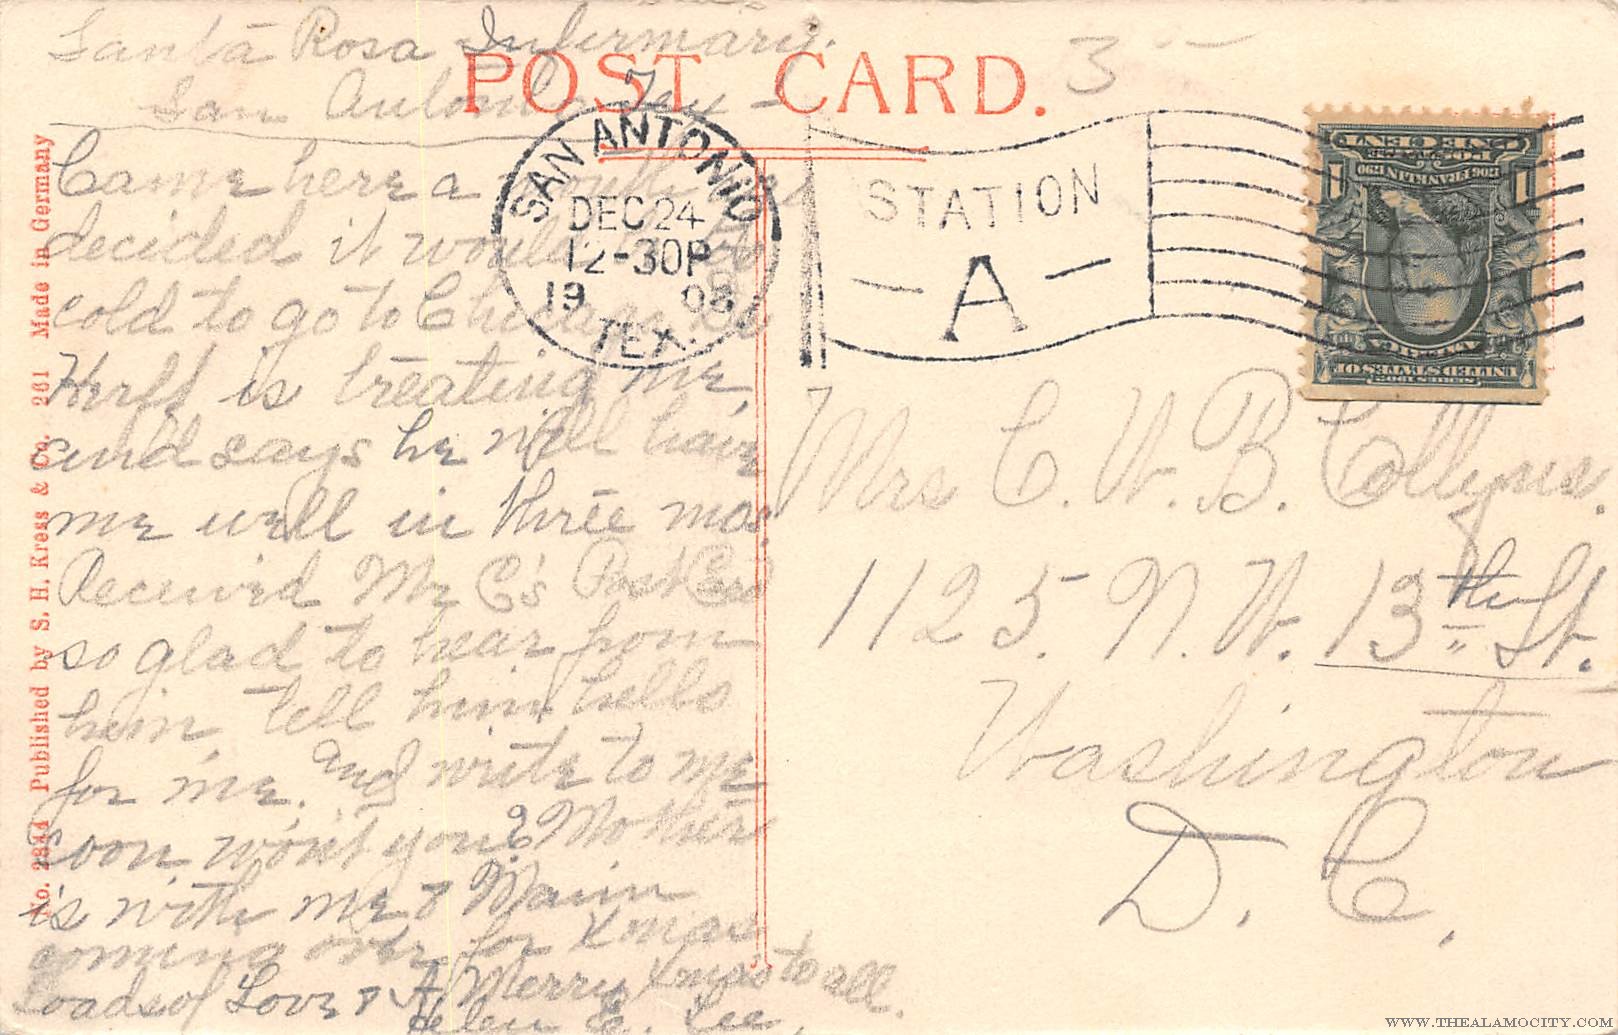 Santa Rosa Infirmary.
San Antonio Tex -
POST CARD.
3
Came here a month
decided it would be
cold to go to Chicago. Dr
Herff is treating me,
and says he will have
me well in three mos.
Received Mr C's Post Card
so glad to hear from
him, tell him hello
for me. and write to me
soon won't you? Mother
is with me &
coming over for Xmas
Loads of Love & A Merry Xmas to all.
Helen E. Lee,
No. 2344 Published by S. H. Kress & Co. 261 Made in Germany
SAN ANTONIO
DEC 24
12-30P
1908
TEX.
STATION
A
ONE CENT
POSTAGE
1706 FRANKLIN 1790
1 1
AMERICA
UNITED STATES OF
SERIES 1902
Mrs C. W. B. Collyns.
1125. N. W. 13th St.
Washington
D. C.
WWW.THEALAMOCITY.COM